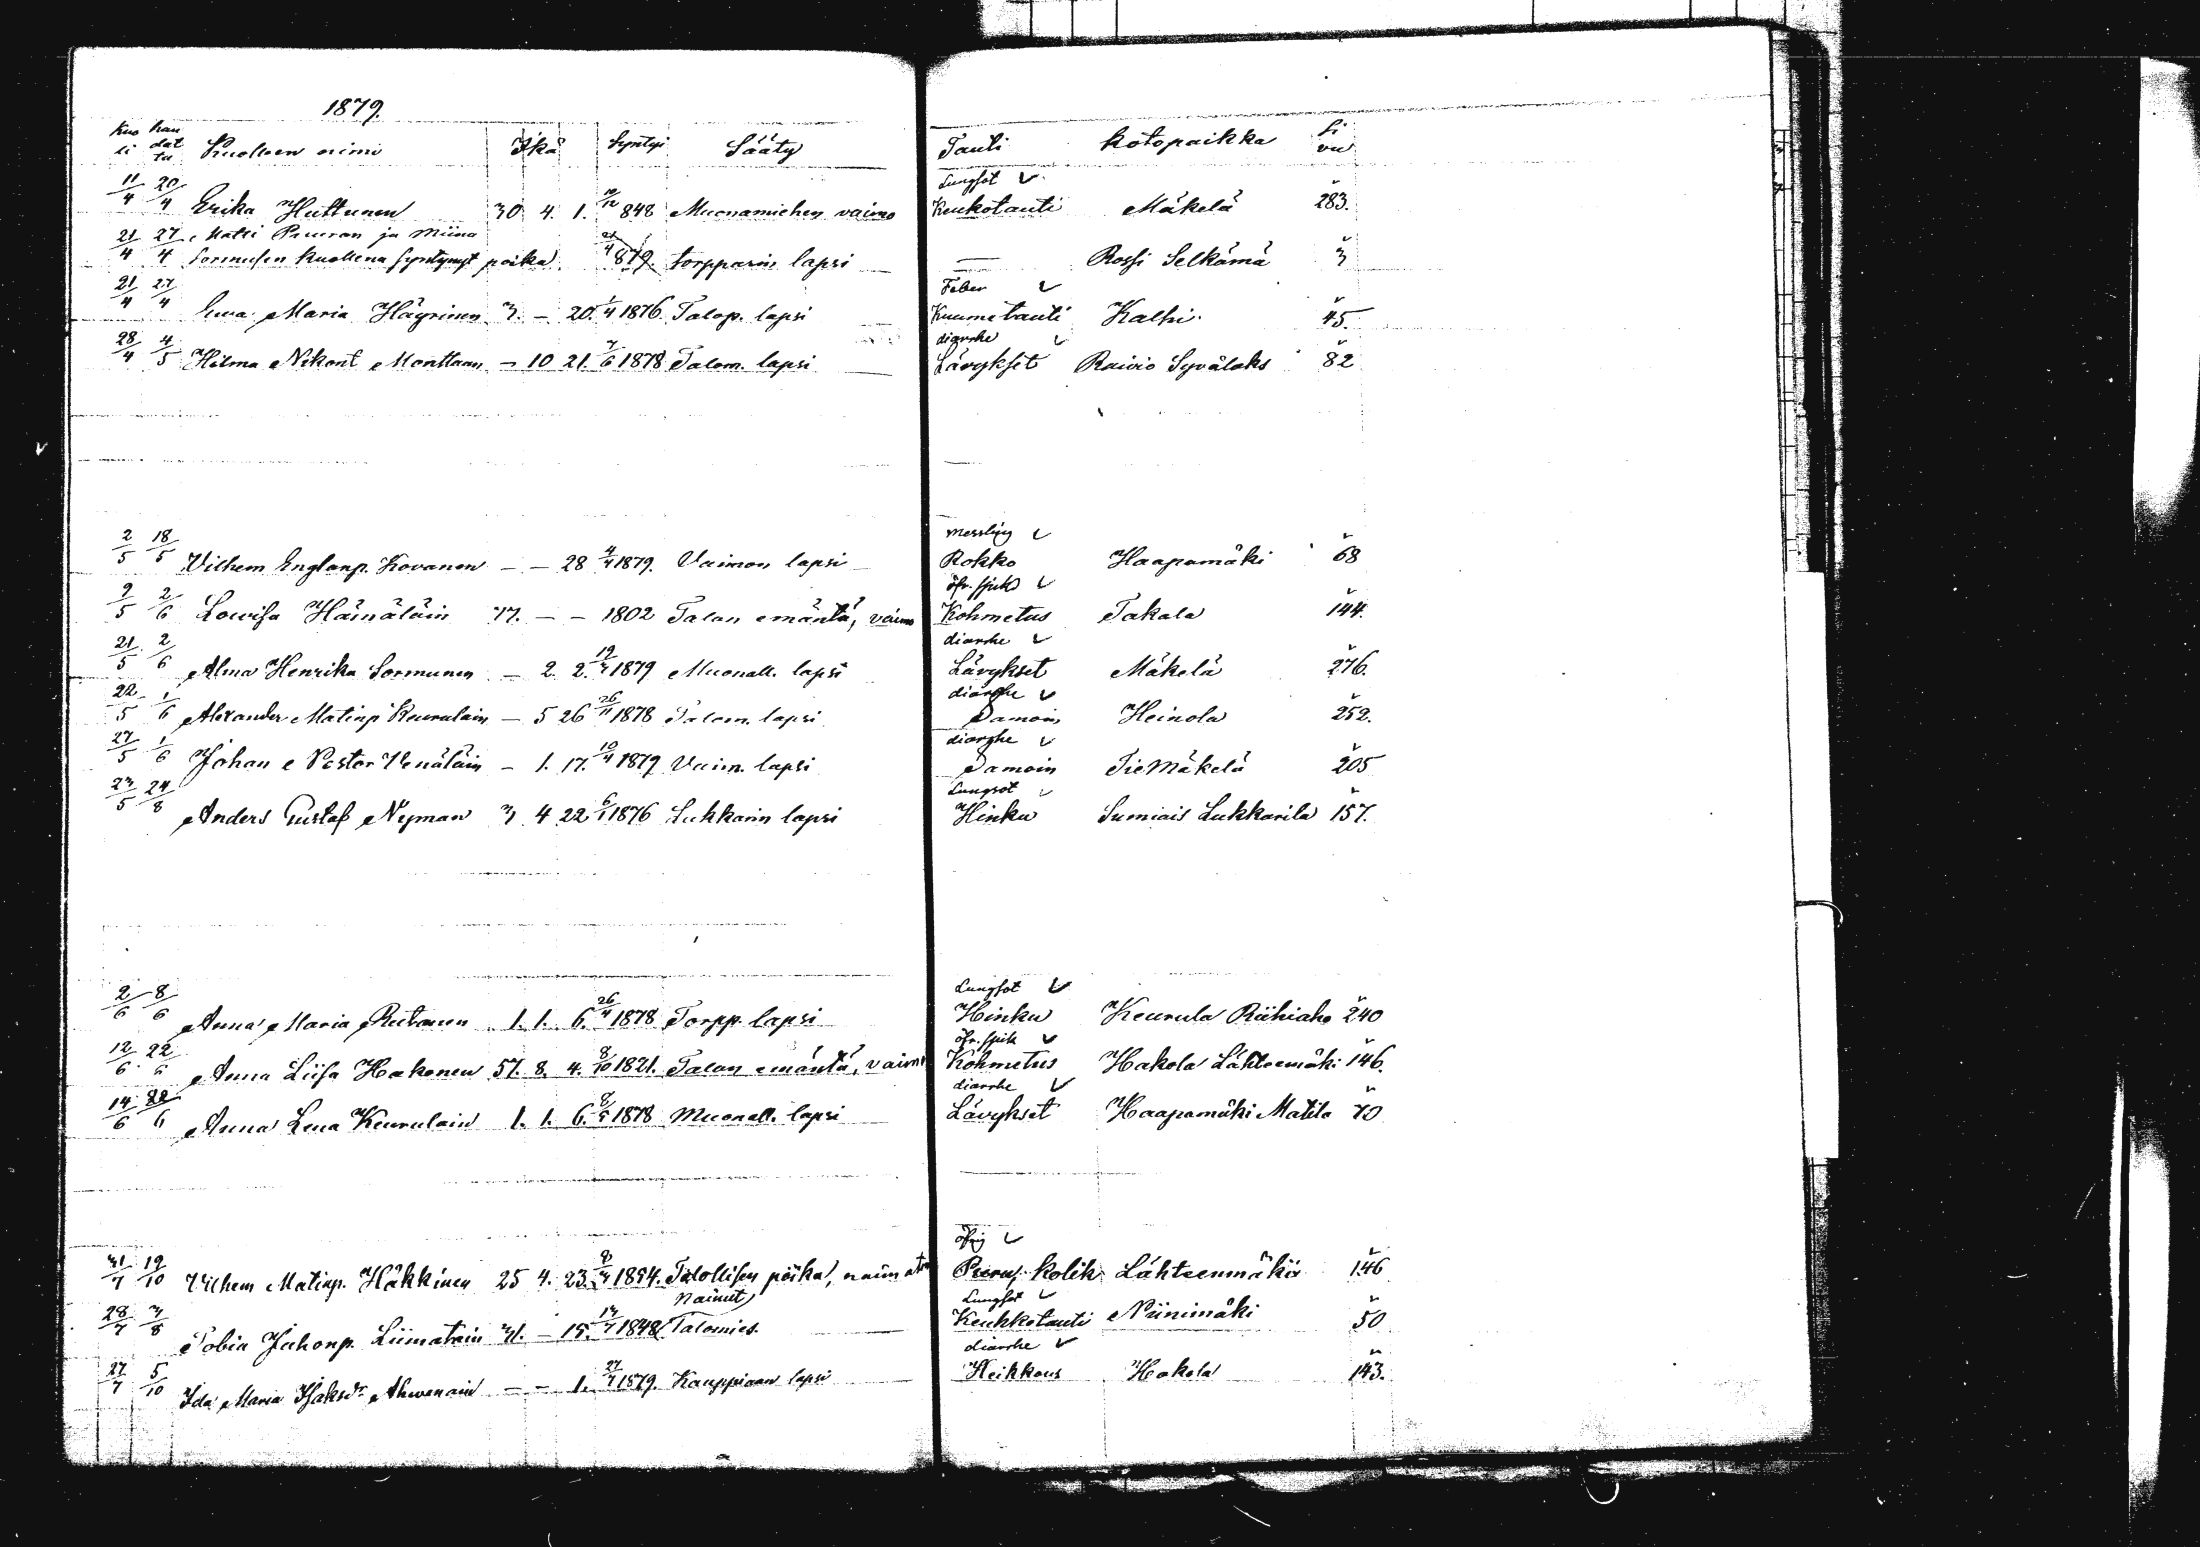 1879.
Kuo li hau dat tu Kuolleen nimi Ikä Syntyi Sääty Tauti kotopaikka Si vu
Lungsot
11/4 20/4 Erika Huttunen 30 4. 1. 10/12 848 Muonamiehen vaimo Keuhkotauti Mäkelä 283.
21/4 27/4 Matti Puuran ja Miina
Sormusen kuollena syntynyt poika 21/4 879. torpparin lapsi — Rossi Selkämä 3
Feber
21/4 27/4 Ewa Maria Häyrinen 3. — 20. 1/4 1876 Talop. lapsi Kuumetauti Kalhi. 45.
diarrhe
28/4 4/5 Hilma Nikont Monttaan — 10 21. 7/6 1878 Talom. lapsi Lävykset Raivio Syvälaks 82
messling
2/5 18/5 Vilhem Englanp. Kovanen — — 28 4/4 1879. Vaimon lapsi Rokko Haapamäki 68
öfr. sjuk
9/5 2/6 Lowisa Hämäläin 77. — — 1802 Talon emäntä, vaimo Kohmetus Takala 144.
diarrhe
21/5 2/6 Alma Henrika Sormunen — 2. 2. 19/3 1879 Muonall. lapsi Lävykset Mäkelä 276.
diarrhe
22/5 1/6 Alexander Matinp Keurulain — 5 26 26/11 1878 Talom. lapsi Samoin Heinola 252.
diarrhe
27/5 1/6 Johan Nestor Venäläin — 1. 17. 10/4 1879 Vaim. lapsi Samoin Tie Mäkelä 205
Lungsot
23/5 24/8 Anders Gustaf Nyman 3 4 22 6/1 1876 Lukkarin lapsi Hinku Sumiais Lukkarila 157.
Lungsot
2/6 8/6 Anna Maria Rutanen 1. 1. 6. 26/4 1878 Torpp. lapsi Hinku Keurula Riihiaho 240
öfr. sjuk
12/6 22/6 Anna Liisa Hakonen 57. 8. 4. 8/10 1821. Talon emäntä, vaimo Kohmetus Hakola Lähteemäki 146.
diarrhe
14/6 22/6 Anna Lena Keurulain 1. 1. 6. 8/5 1878 Muonall. lapsi Lävykset Haapamäki Matila 70
öfrig
31/7 19/10 Vilhem Matinp. Häkkinen 25 4. 23. 8/3 1854. Talollisen poika, naimaton Puru, kolik Lähteenmäki 146
Nainut Lungsot
28/7 3/8 Tobia Juhonp. Liimatain 31. — 15. 13/7 1848 Talomies. Keuhkotauti Niinimäki 50
diarrhe
27/7 5/10 Ida Maria Isaksdr Ahwenain — — 1. 27/7 1879. Kauppiaan lapsi Heikkous Hakola 143.